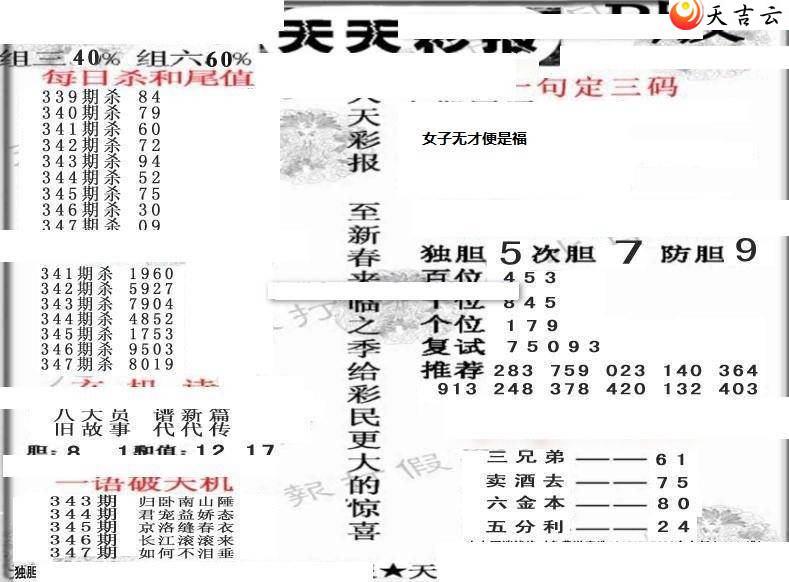 天吉云
天天彩报
组三40% 组六60%
每日杀和尾值
339期杀 84
340期杀 79
341期杀 60
342期杀 72
343期杀 94
344期杀 52
345期杀 75
346期杀 30
347期杀 09
341期杀 1960
342期杀 5927
343期杀 7904
344期杀 4852
345期杀 1753
346期杀 9503
347期杀 8019
八大员 谱新篇
旧故事 代代传
胆:8 1和值:12 17
一语破天机
343期 归卧南山陲
344期 君宠益娇态
345期 京洛缝春衣
346期 长江滚滚来
347期 如何不泪垂
独胆
天彩报
至新春来临之季给彩民更大的惊喜
★天
一句定三码
女子无才便是福
独胆 5 次胆 7 防胆 9
百位 453
十位 845
个位 179
复试 75093
推荐 283 759 023 140 364
913 248 378 420 132 403
三兄弟——61
卖酒去——75
六金本——80
五分利——24